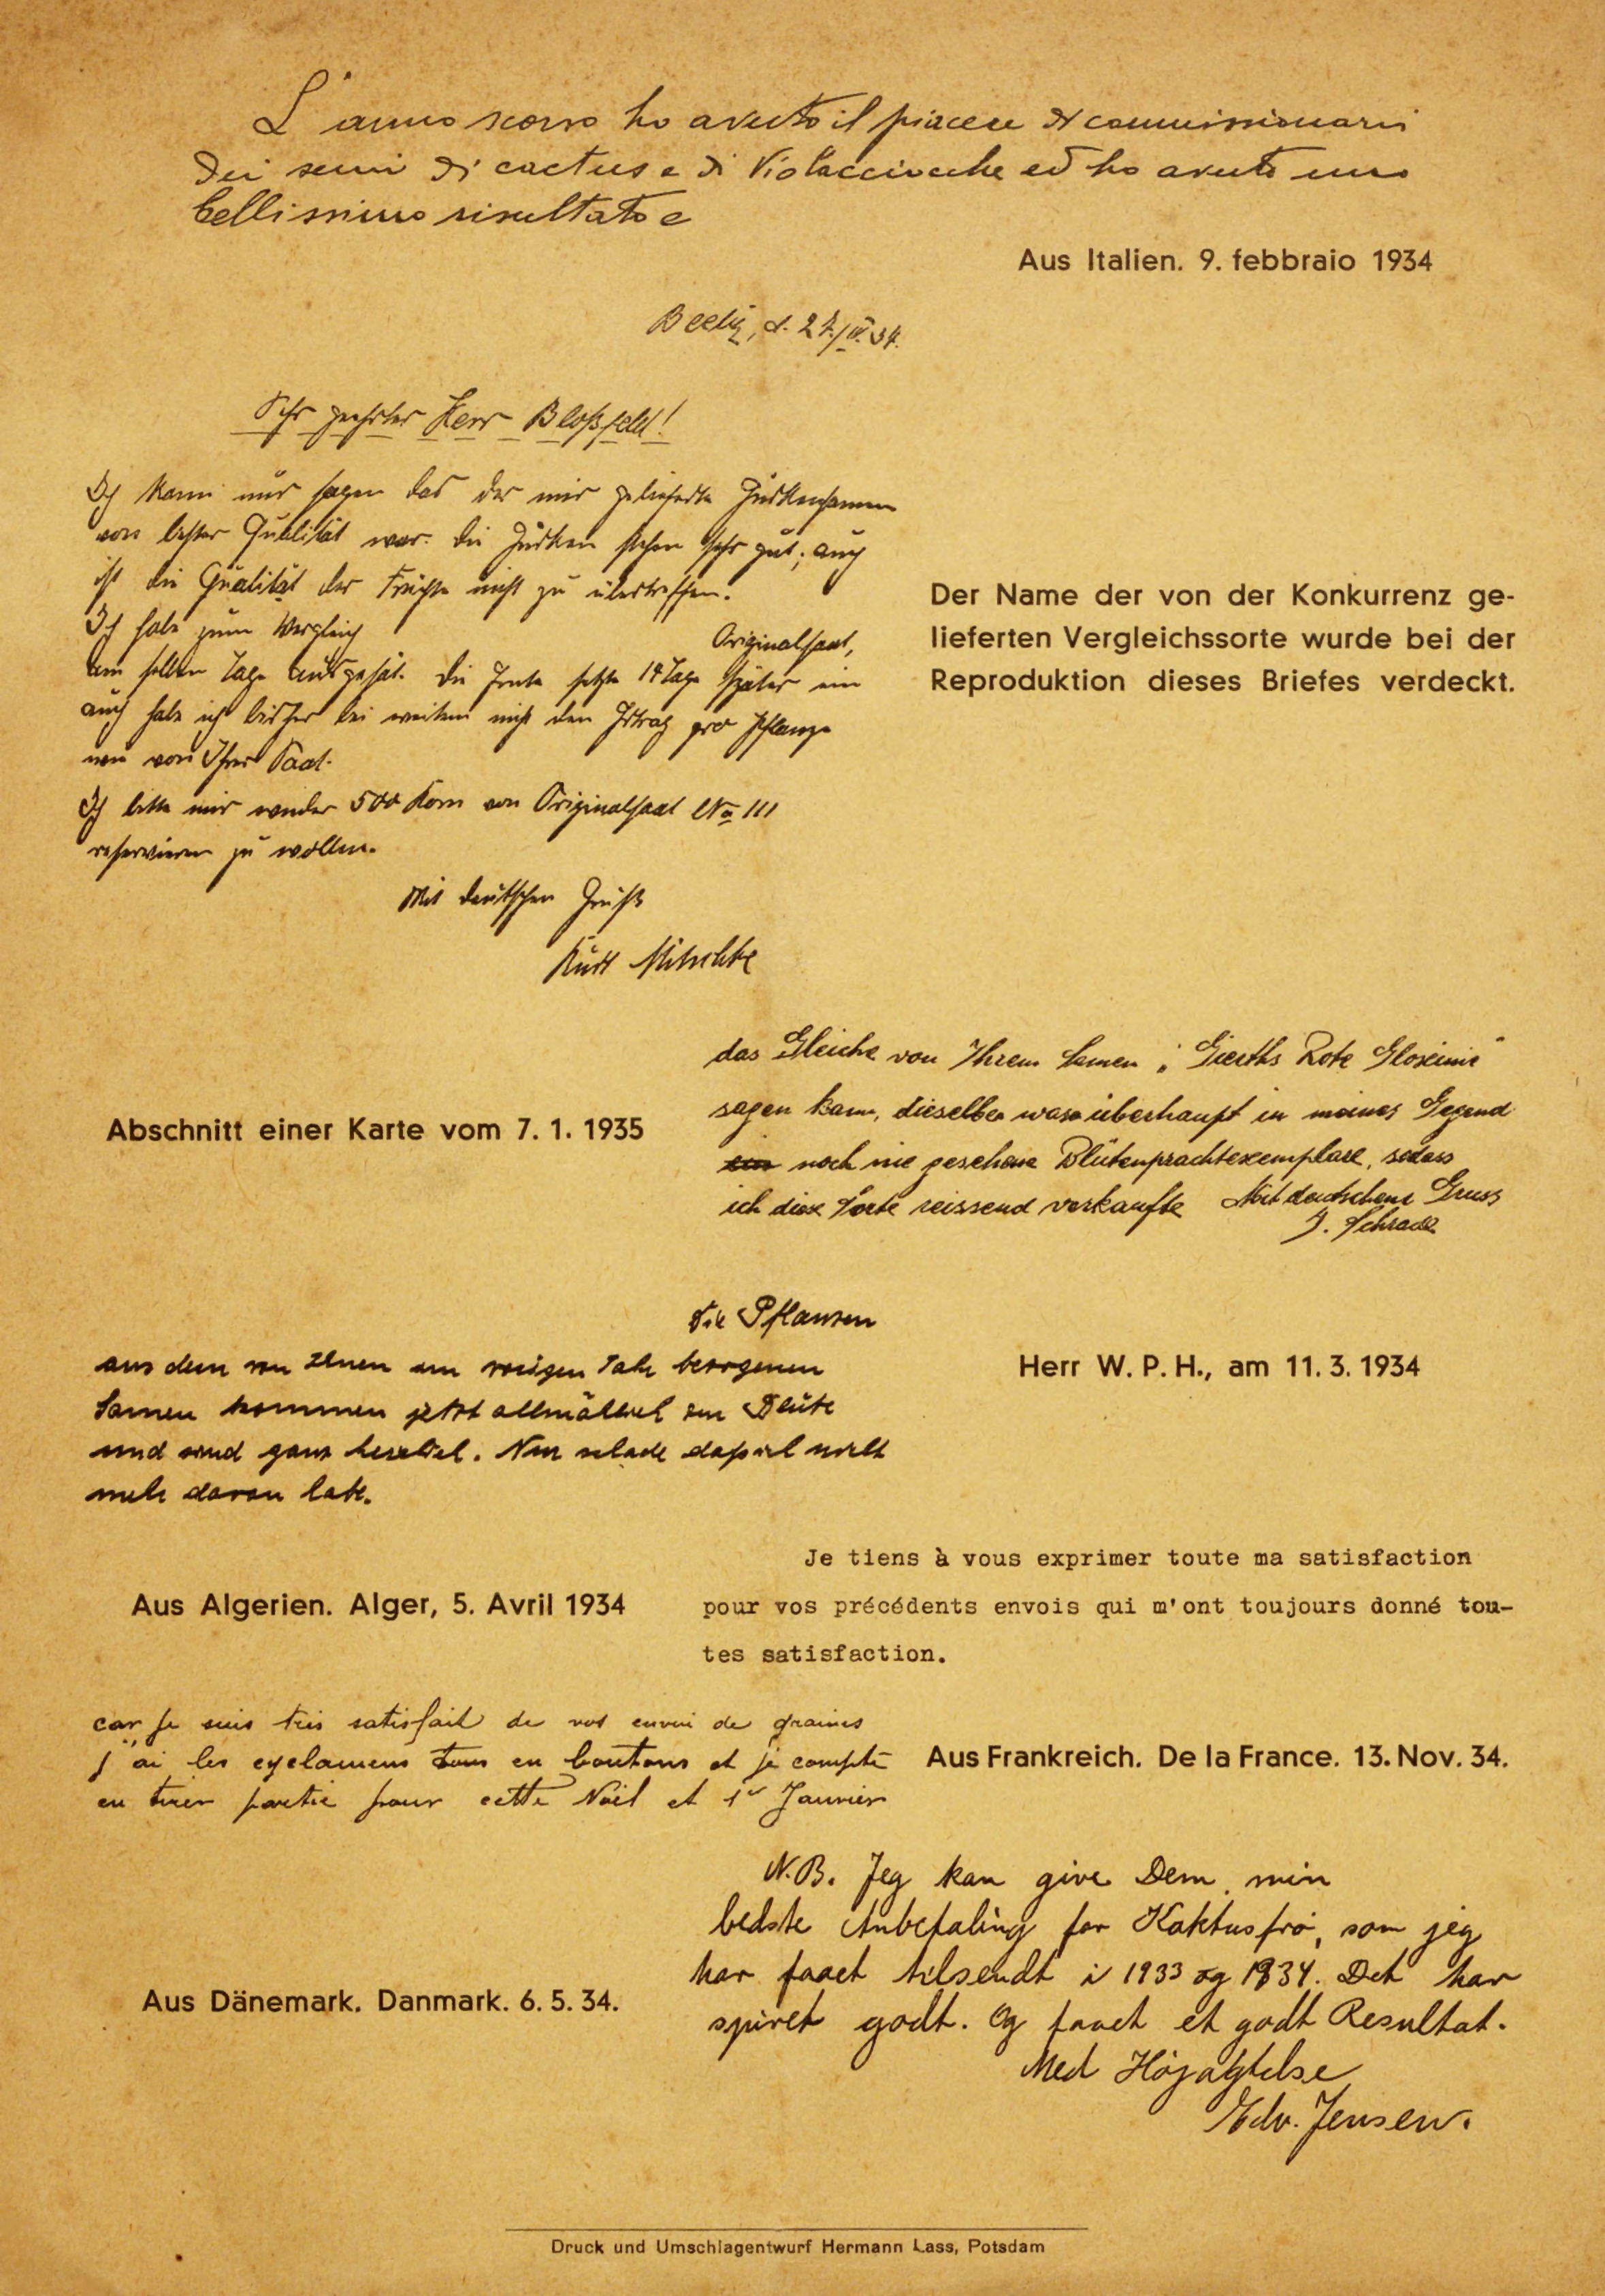 L'anno scorso ho avuto il piacere di commissionarvi
dei semi di cactus e di Violacciocche ed ho avuto uno
bellissimo risultato e
Aus Italien. 9. febbraio 1934
Beelitz, d. 27./IV. 34.
Sehr geehrter Herr Bloßfeld!
Ich kann nur sagen das der mir gelieferte Gurkensamen
von bester Qualität war. Die Gurken stehen sehr gut; auch
ist die Qualität der Früchte nicht zu übertreffen.
Ich habe zum Vergleich Originalsaat,
am selben Tage ausgesät. Die Ernte setzte 14 Tage später ein
auch habe ich bisher bei weitem nicht den Ertrag pro Pflanze
von Ihrer Saat.
Ich bitte mir wieder 500 Korn von Originalsaat No 111
reservieren zu wollen.
Mit deutschen Gruß
Kurt Mitschke
Der Name der von der Konkurrenz ge-
lieferten Vergleichssorte wurde bei der
Reproduktion dieses Briefes verdeckt.
das Gleiche von Ihrem Samen „Gierths Rote Gloxinie"
sagen kann, dieselben waren überhaupt in meiner Gegend
noch nie gesehene Blütenprachtexemplare, sodass
ich diese Sorte reissend verkaufte Mit deutschem Gruss
J. Schrade
Abschnitt einer Karte vom 7. 1. 1935
Die Pflanzen
aus dem von Ihnen im vorigen Jahr bezogenen
Samen kommen jetzt allmählich zur Blüte
und sind ganz herrlich. Nur schade daß ich nicht
mehr davon habe.
Herr W. P. H., am 11. 3. 1934
Je tiens à vous exprimer toute ma satisfaction
pour vos précédents envois qui m'ont toujours donné tou-
tes satisfaction.
Aus Algerien. Alger, 5. Avril 1934
car je suis très satisfait de vos envoi de graines
j'ai les cyclamens tous en boutons et je compte
en tirer partie pour cette Noël et 1er Janvier
Aus Frankreich. De la France. 13. Nov. 34.
N.B. Jeg kan give Dem min
bedste Anbefaling for Kaktusfrø, som jeg
har faaet tilsendt i 1933 og 1934. Det har
spiret godt. Og faaet et godt Resultat.
Med Højagtelse
Edv. Jensen.
Aus Dänemark. Danmark. 6. 5. 34.
Druck und Umschlagentwurf Hermann Lass, Potsdam